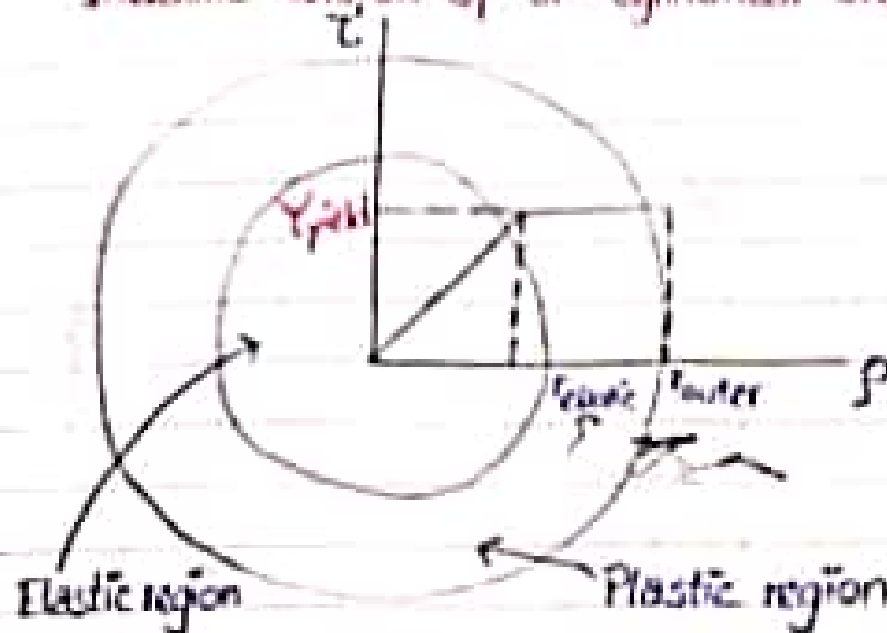 of a
τ
τyield
relastic router ρ
Elastic region
Plastic region